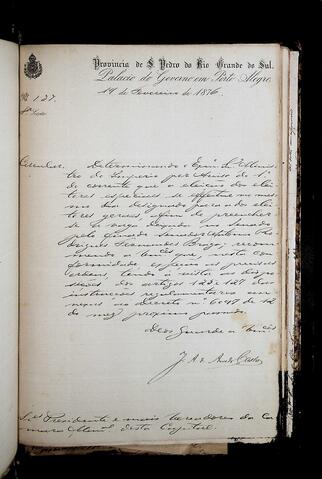 Provincia de S. Pedro do Rio Grande do Sul.
Palacio do Governo em Porto Alegre,
14 de Fevereiro de 1876.
Nº 127.
Circular. Determinando o Exmº Sr. Minis-
tro do Imperio por Aviso do 1º
do corrente que a eleição dos elei-
tores especiaes se effectue no mes-
mo dia designado para a dos elei-
tores geraes, afim de preencher-
se a vaga deixada no Senado
pelo finado Senador Antonio Ro-
drigues Fernandes Braga, recom-
mendo a Vmcês que, nesta con-
formidade, expeção as precisas
ordens, tendo á vista as dispo-
sições dos artigos 123 e 127 das
instrucções regulamentares an-
nexas ao decreto nº 6097 de 12
do mez proximo passado.
Deos Guarde a Vmcês
Srs. Presidente e mais Vereadores da Ca-
mara Mual. desta Capital.